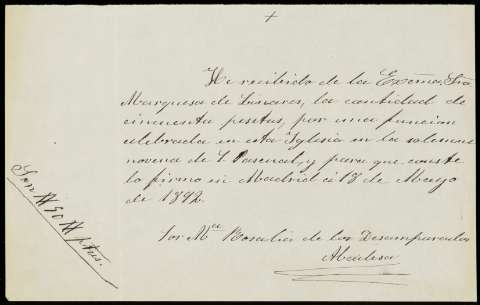 +
He recibido de la Excma. Sra
Marquesa de Linares, la cantidad de
cincuenta pesetas, por una funcion
celebrada en esta Iglesia en la solemne
novena de S. Pascual, y para que conste
lo firmo en Madrid a 18 de Mayo
de 1892.
Sor Mª Rosalia de los Desamparados
Abadesa
Son # 50 # ptas.